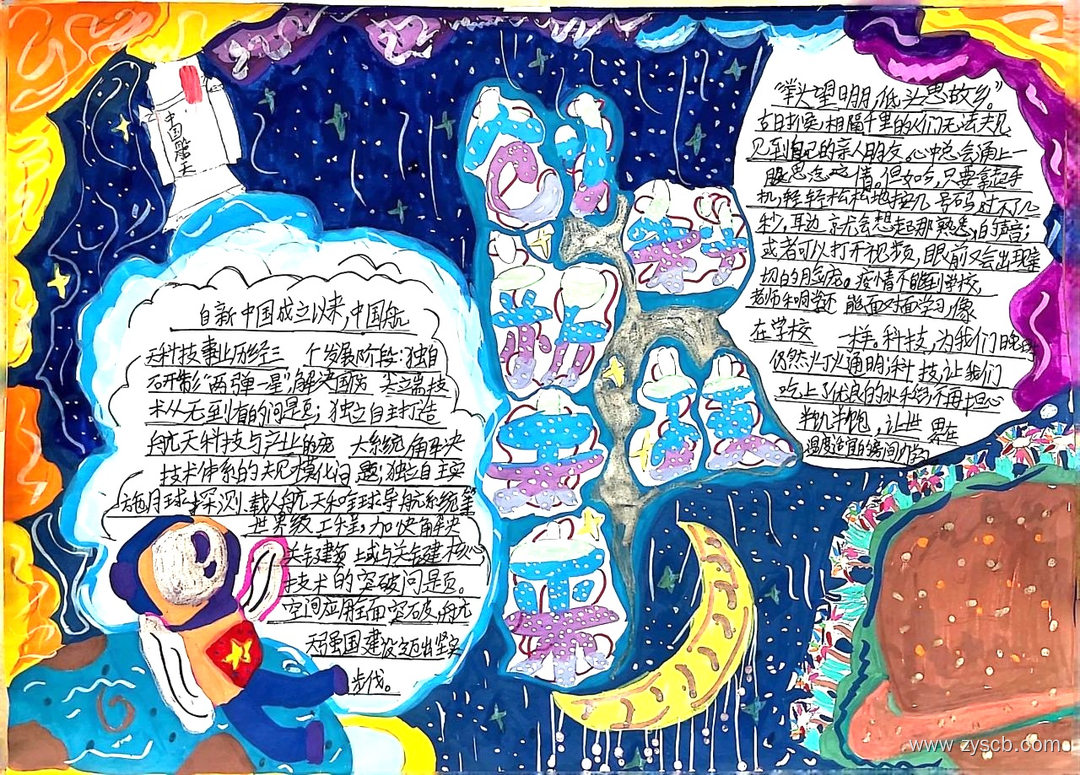 中国航天
自新中国成立以来,中国航
天科技事业历经三 个发展阶段:独自
研制“两弹一星”,解决国防 尖端技
术从无到有的问题;独立自主打造
航天科技与产业的庞 大系统,解决
技术体系的大规模化问 题;独立自主实
施月球探测、载人航天和全球导航系统等
世界级工程,加快解决
关键 域与关键核心
技术的突破问题。
空间应用全面突破,航
天强国建设迈出坚实
步伐。
“举头望明月,低头思故乡。”
古时候,相隔千里的人们无法
见到自己的亲人朋友,心中总会涌上一
股思念之情。但如今,只要拿起手
机,轻轻松松地按几 号码,过不了几
秒,耳边 就会想起那熟悉的声音;
或者可以打开视频,眼前又会出现亲
切的 。疫情不能到学校,
老师和同学还 能面对面学习,像
在学校 一样。科技,为我们
仍然灯火通明;科技,让我们
吃上了优良的水稻,不再担心
,让世 界在
温度适宜的房间
www.zyscb.com